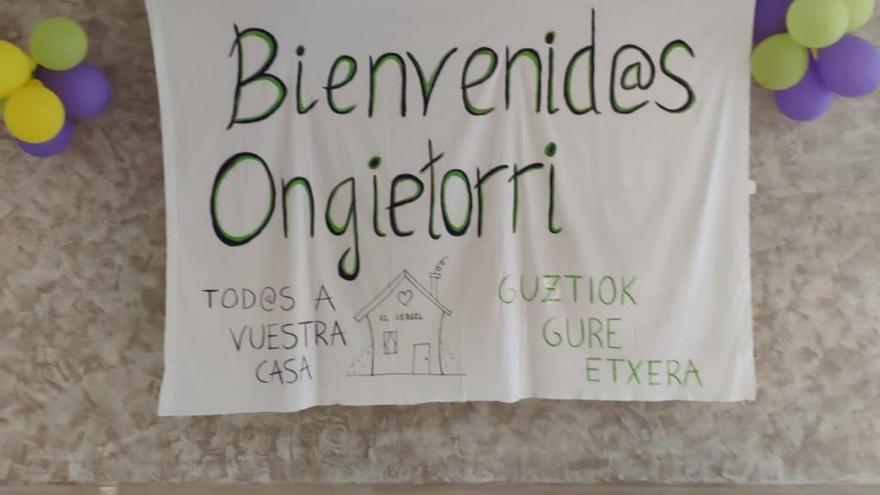 Bienvenid@s
Ongietorri
TOD@S A
VUESTRA
CASA
EL VERGEL
GUZTIOK
GURE
ETXERA